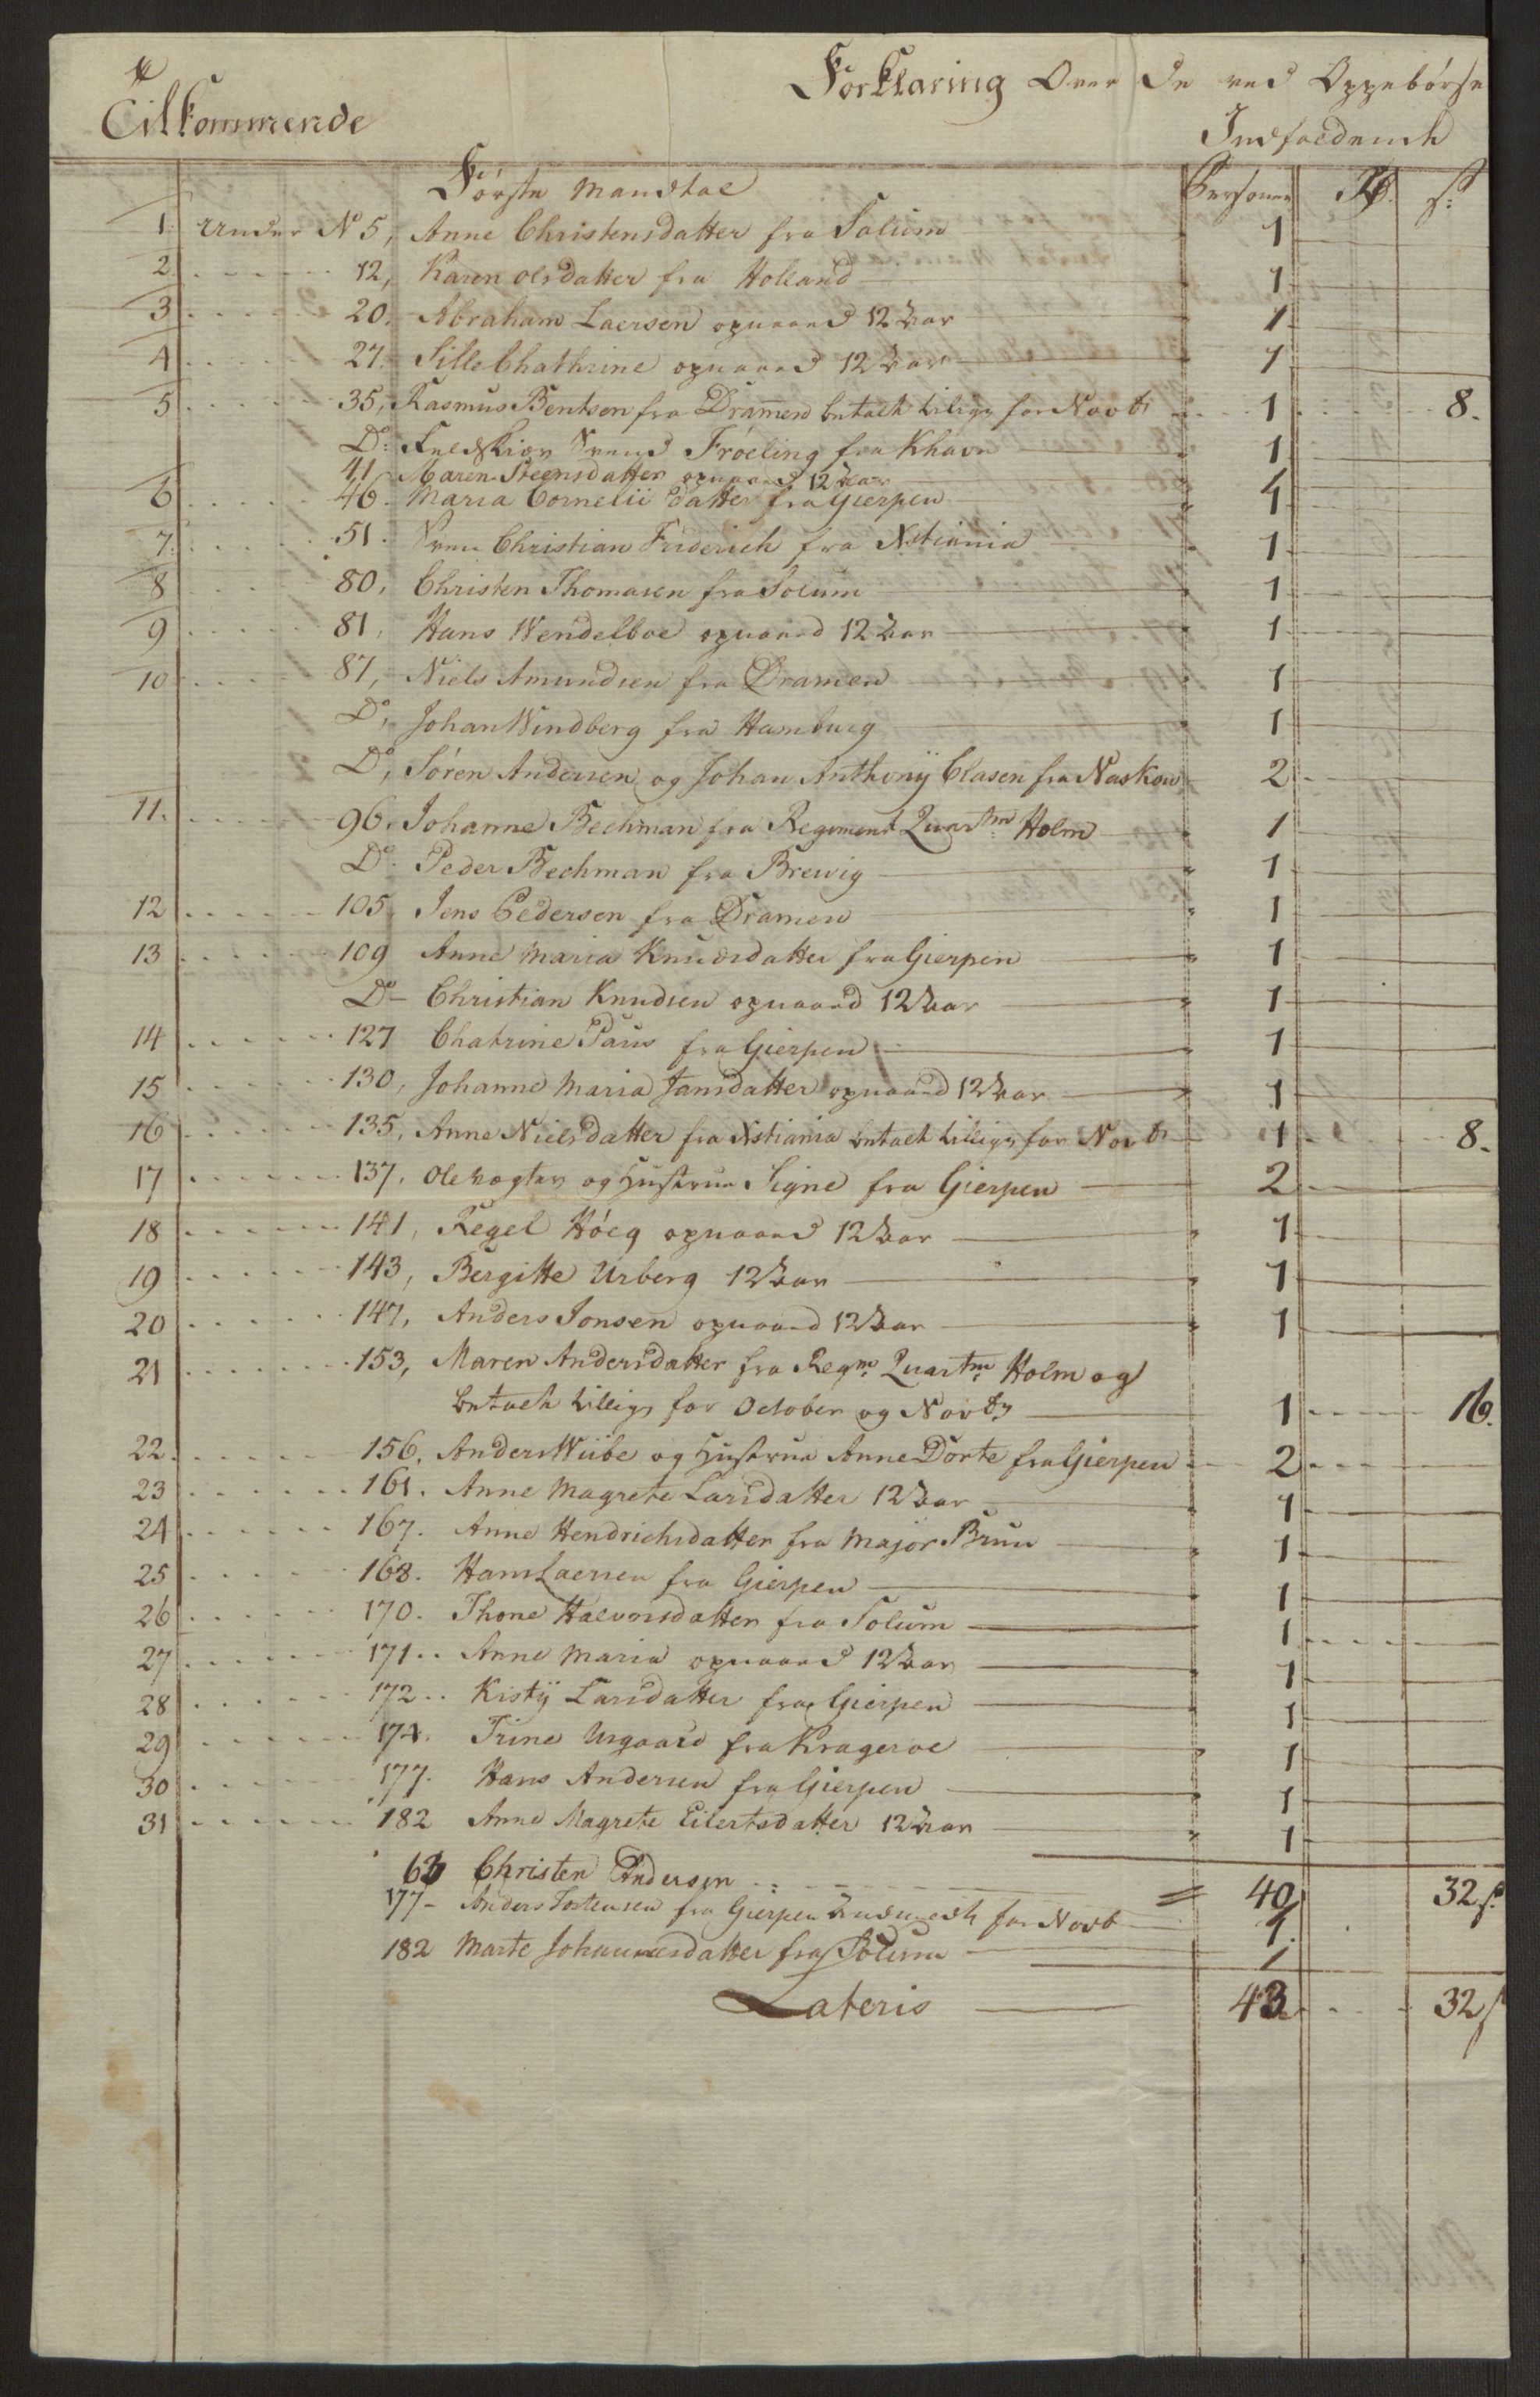 Tilkommende
Forklaring Over De ved Oppebørse
Indfoedendh
Første Mandtal
Personer Rd. s:
1. Under No 5, Anne Christensdatter fra Solum 1
2 12, Karen Olsdatter fra Holland 1
3 20. Abraham Laersen opvaared 12 Aar 1
4 27. Sille Chathrine opvaared 12 Aar 1
5 35, Rasmus Bentsen fra Dramen betalt tillige for Novbr 1 8.
Do: Svend Frøeling fra Khavn 1
41 Maren Steensdatter opvaared 12 Aar 1
6 46. Maria Cornelii datter fra Gierpen 1
7. 51. Christian Friderich fra Xstiania 1
8 80, Christen Thomasen fra Solum 1
9 81, Hans Wendelboe opvaared 12 Aar 1
10 87, Niels Amundsen fra Dramen 1
Do, Johan Windberg fra Hamburg 1
Do, Søren Andersen og Johan Anthonÿ Clasen fra Naskow 2
11. 96. Johanne Bechman fra Regiment Quartm Holm 1
Do. Peder Bechman fra Brewig 1
12 105. Jens Pedersen fra Dramen 1
13 109 Anne Maria Knudsdatter fra Gierpen 1
Do- Christian Knudsen opvaared 12 Aar 1
14 127 Chatrine Paus fra Gierpen 1
15 130, Johanne Maria Jansdatter opvaared 12 Aar 1
16 135, Anne Nielsdatter fra Xstiania betalt tillige for Novbr 1 8.
17 137. Ole Vogter og Hustrue Signe fra Gierpen 2
18 141, Regel Høeg opvaared 12 Aar 1
19 143, Bergitte Urberg 12 Aar 1
20 147, Anders Jonsen opvaared 12 Aar 1
21 153, Maren Andersdatter fra Regm. Quartm. Holm og
betalt tillige for October og Novbr 1 16.
22. 156, Anders Wiibe og Hustrue Anne Dorte fra Gierpen 2
23 161. Anne Magrete Larsdatter 12 Aar 1
24 167. Anne Hendrichsdatter fra Major Bruu 1
25 168. Hans Laersen fra Gierpen 1
26 170. Thone Halvorsdatter fra Solum 1
27 171.. Anne Maria opvaared 12 Aar 1
28 172.. Kistÿ Larsdatter fra Gierpen 1
29 174. Trine Urgaard fra Krageroe 1
30 177. Hans Andersen fra Gierpen 1
31 182 Anne Magrete Eilertsdatter 12 Aar 1
63 Christen Andersen 40 32 s.
177- Anders Tostensen fra Gierpen for Novb 1
182 Marte Johannesdatter fra Solum 1
Lateris 43 32 s